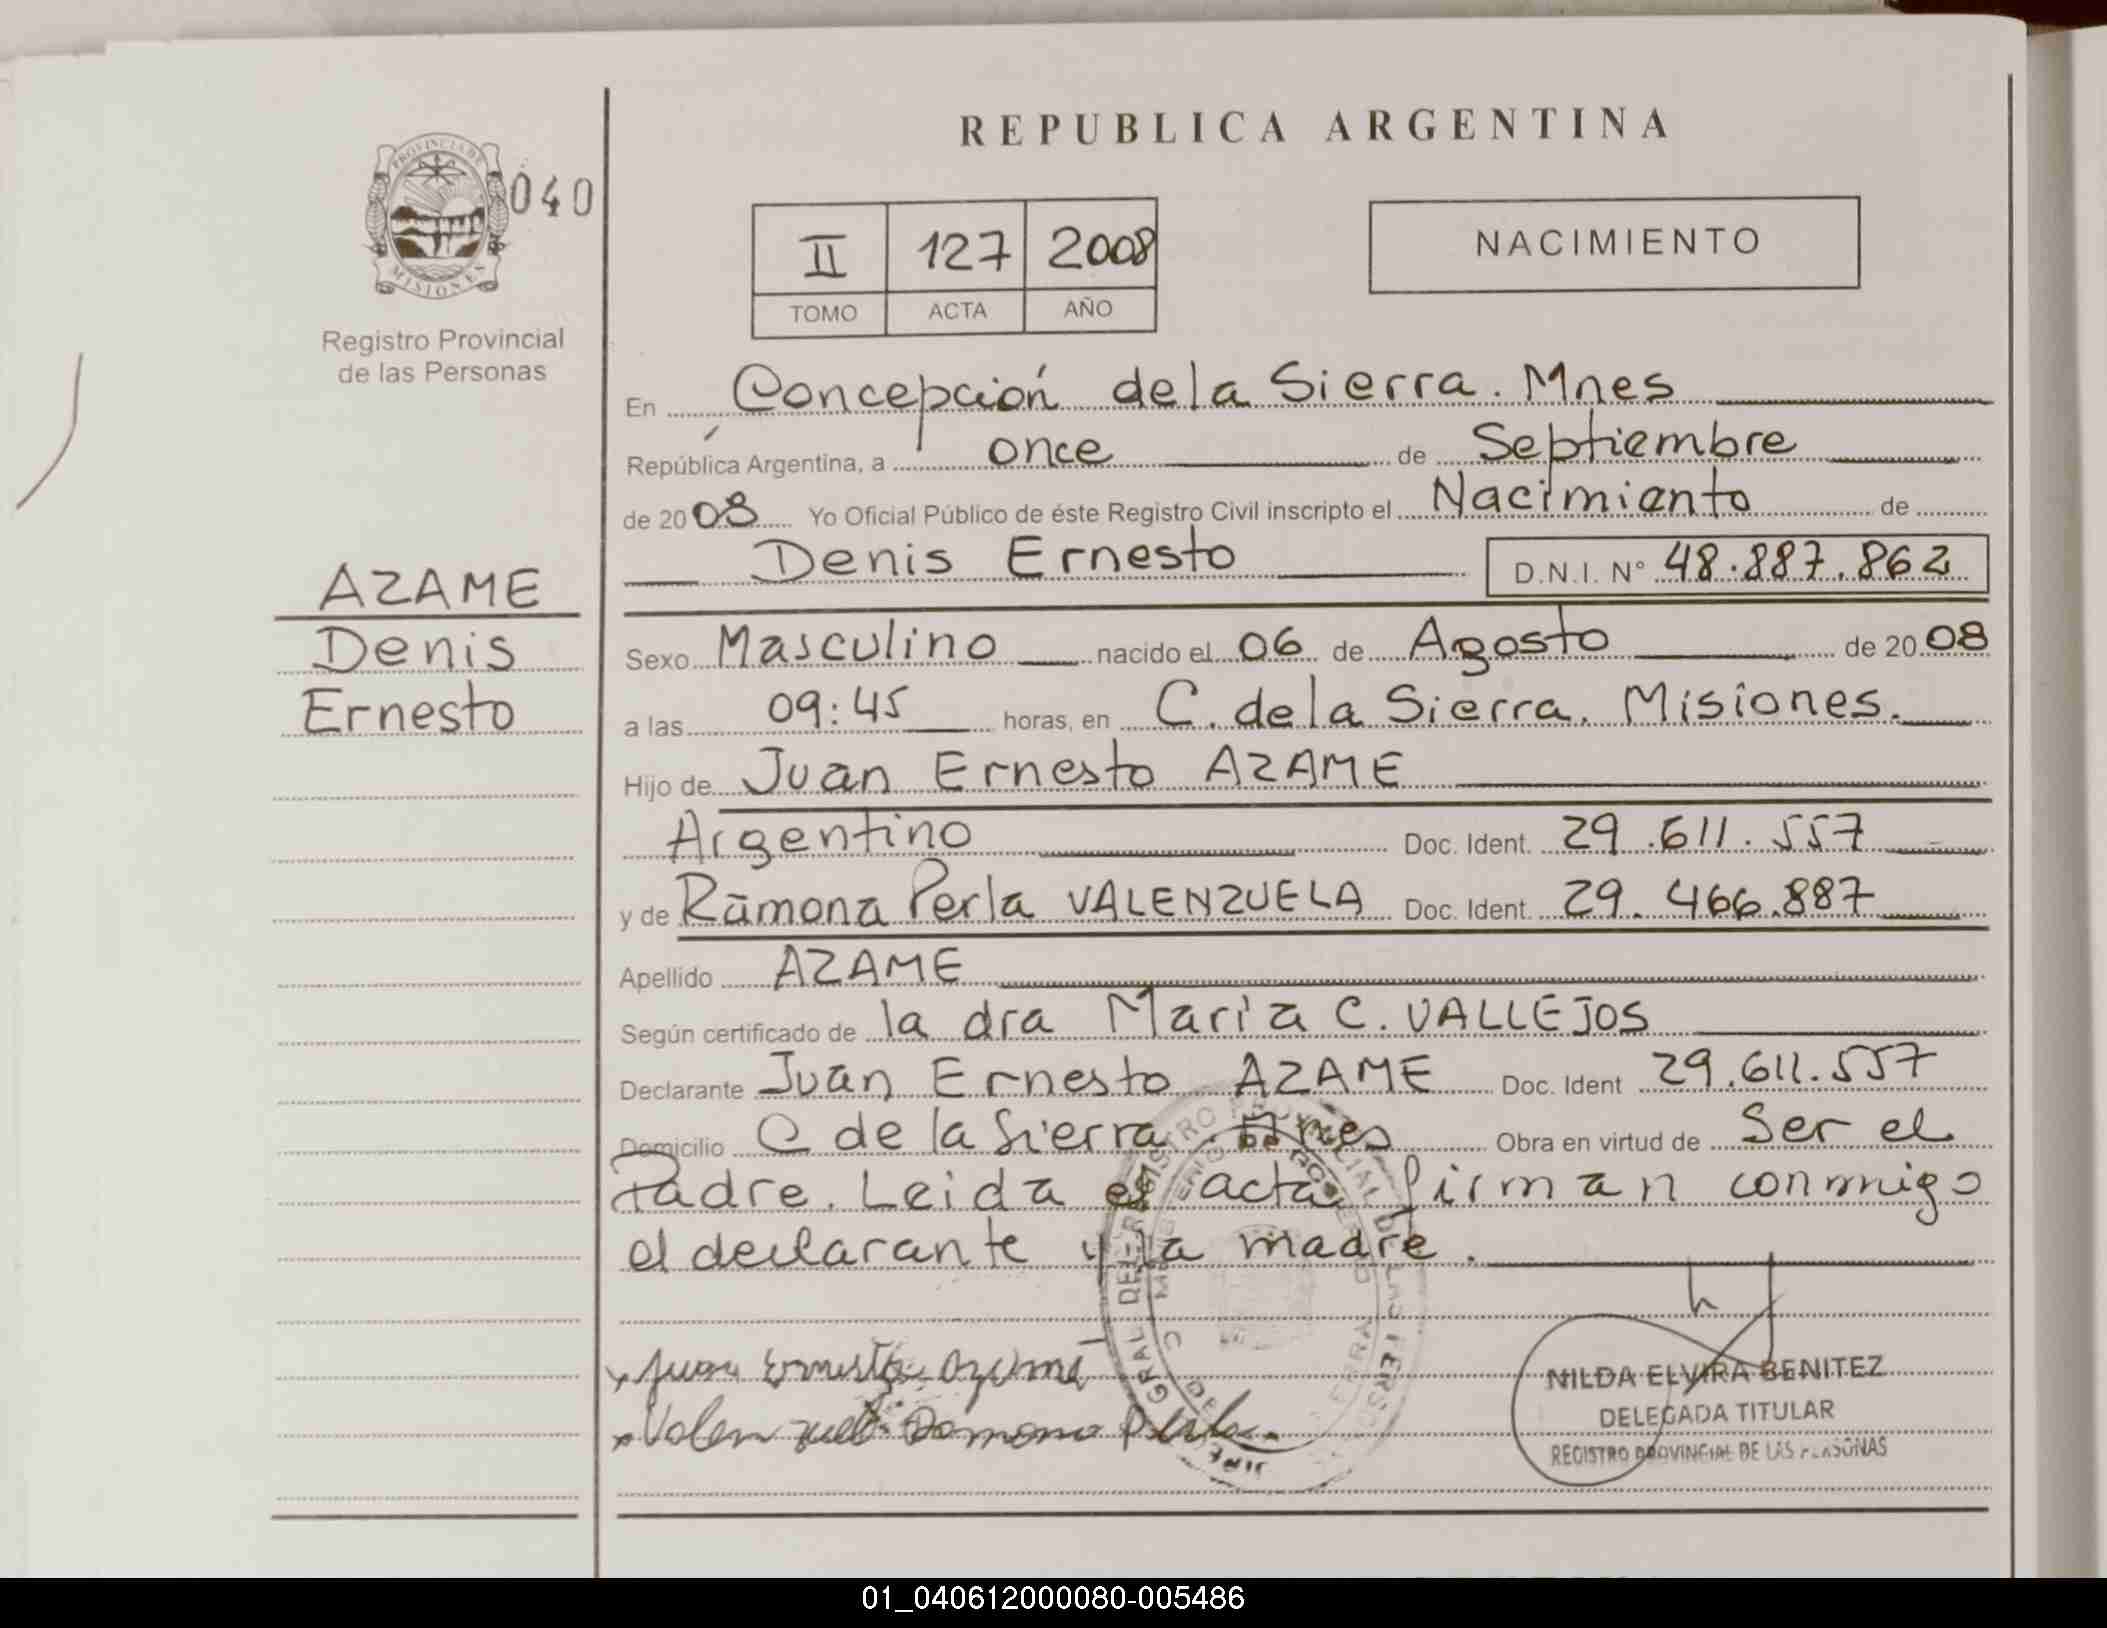 REPUBLICA ARGENTINA
PROVINCIA DE MISIONES
040
Registro Provincial
de las Personas
II 127 2008
TOMO ACTA AÑO
NACIMIENTO
AZAME
Denis
Ernesto
En Concepción de la Sierra. Mnes
República Argentina, a once de Septiembre
de 2008 Yo Oficial Público de éste Registro Civil inscripto el Nacimiento de
Denis Ernesto D.N.I. N° 48.887.862
Sexo Masculino nacido el 06 de Agosto de 2008
a las 09:45 horas, en C. de la Sierra. Misiones.
Hijo de Juan Ernesto AZAME
Argentino Doc. Ident. 29.611.557
y de Ramona Perla VALENZUELA Doc. Ident. 29.466.887
Apellido AZAME
Según certificado de la dra Maria C. VALLEJOS
Declarante Juan Ernesto AZAME Doc. Ident 29.611.557
Domicilio C de la Sierra. Mnes Obra en virtud de Ser el
Padre. Leida el acta firman conmigo
el declarante y la madre.
Juan Ernesto Azame
Valenzuela Ramona Perla
NILDA ELVIRA BENITEZ
DELEGADA TITULAR
REGISTRO PROVINCIAL DE LAS PERSONAS
01_040612000080-005486